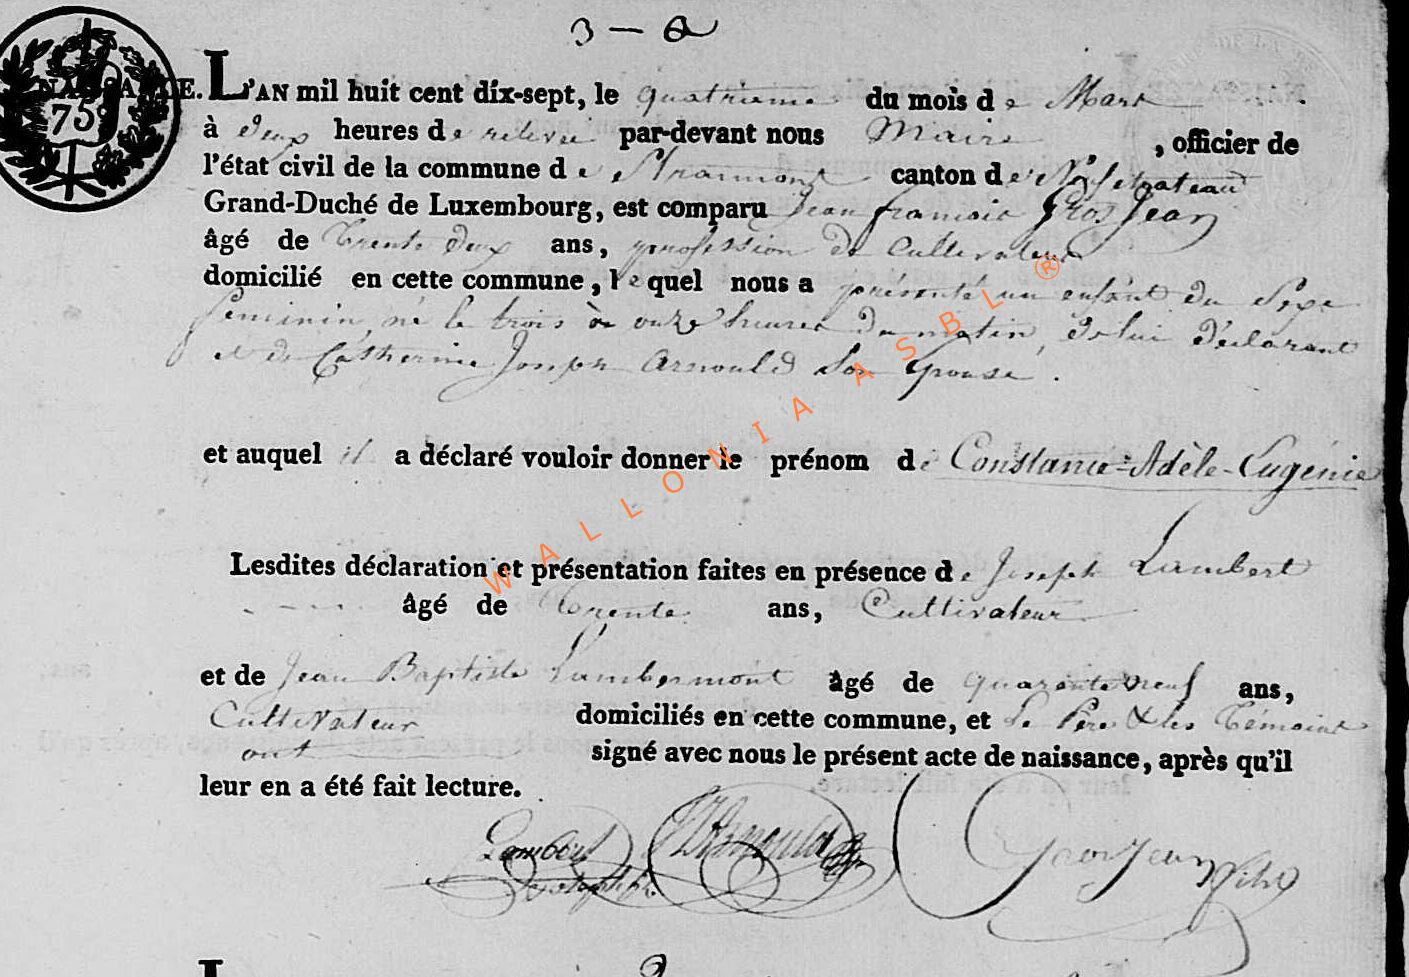 3 — a
NAISSANCE. L'AN mil huit cent dix-sept, le quatrieme du mois de Mars
75
à deux heures de relevée par-devant nous Maire , officier de
l'état civil de la commune de Straimont canton de Neufchateau
Grand-Duché de Luxembourg, est comparu Jean francois Gros Jean
âgé de Trente deux ans, profession de Cultivateur
domicilié en cette commune, lequel nous a présenté un enfant du Sexe
feminin, né le trois à onze heures du matin, de lui déclarant
et de Catherine Joseph Arnould Son Epouse.
et auquel il a déclaré vouloir donner le prénom de Constance-Adèle-Eugénie
Lesdites déclaration et présentation faites en présence de Joseph Lambert
âgé de Trente ans, Cultivateur
et de Jean Baptiste Lambermont âgé de quarante neuf ans,
Cultivateur domiciliés en cette commune, et Le Père & les Témoins
ont signé avec nous le présent acte de naissance, après qu'il
leur en a été fait lecture.
Lambert Arnould GrosJean
Joseph
WALLONIA ASBL ®